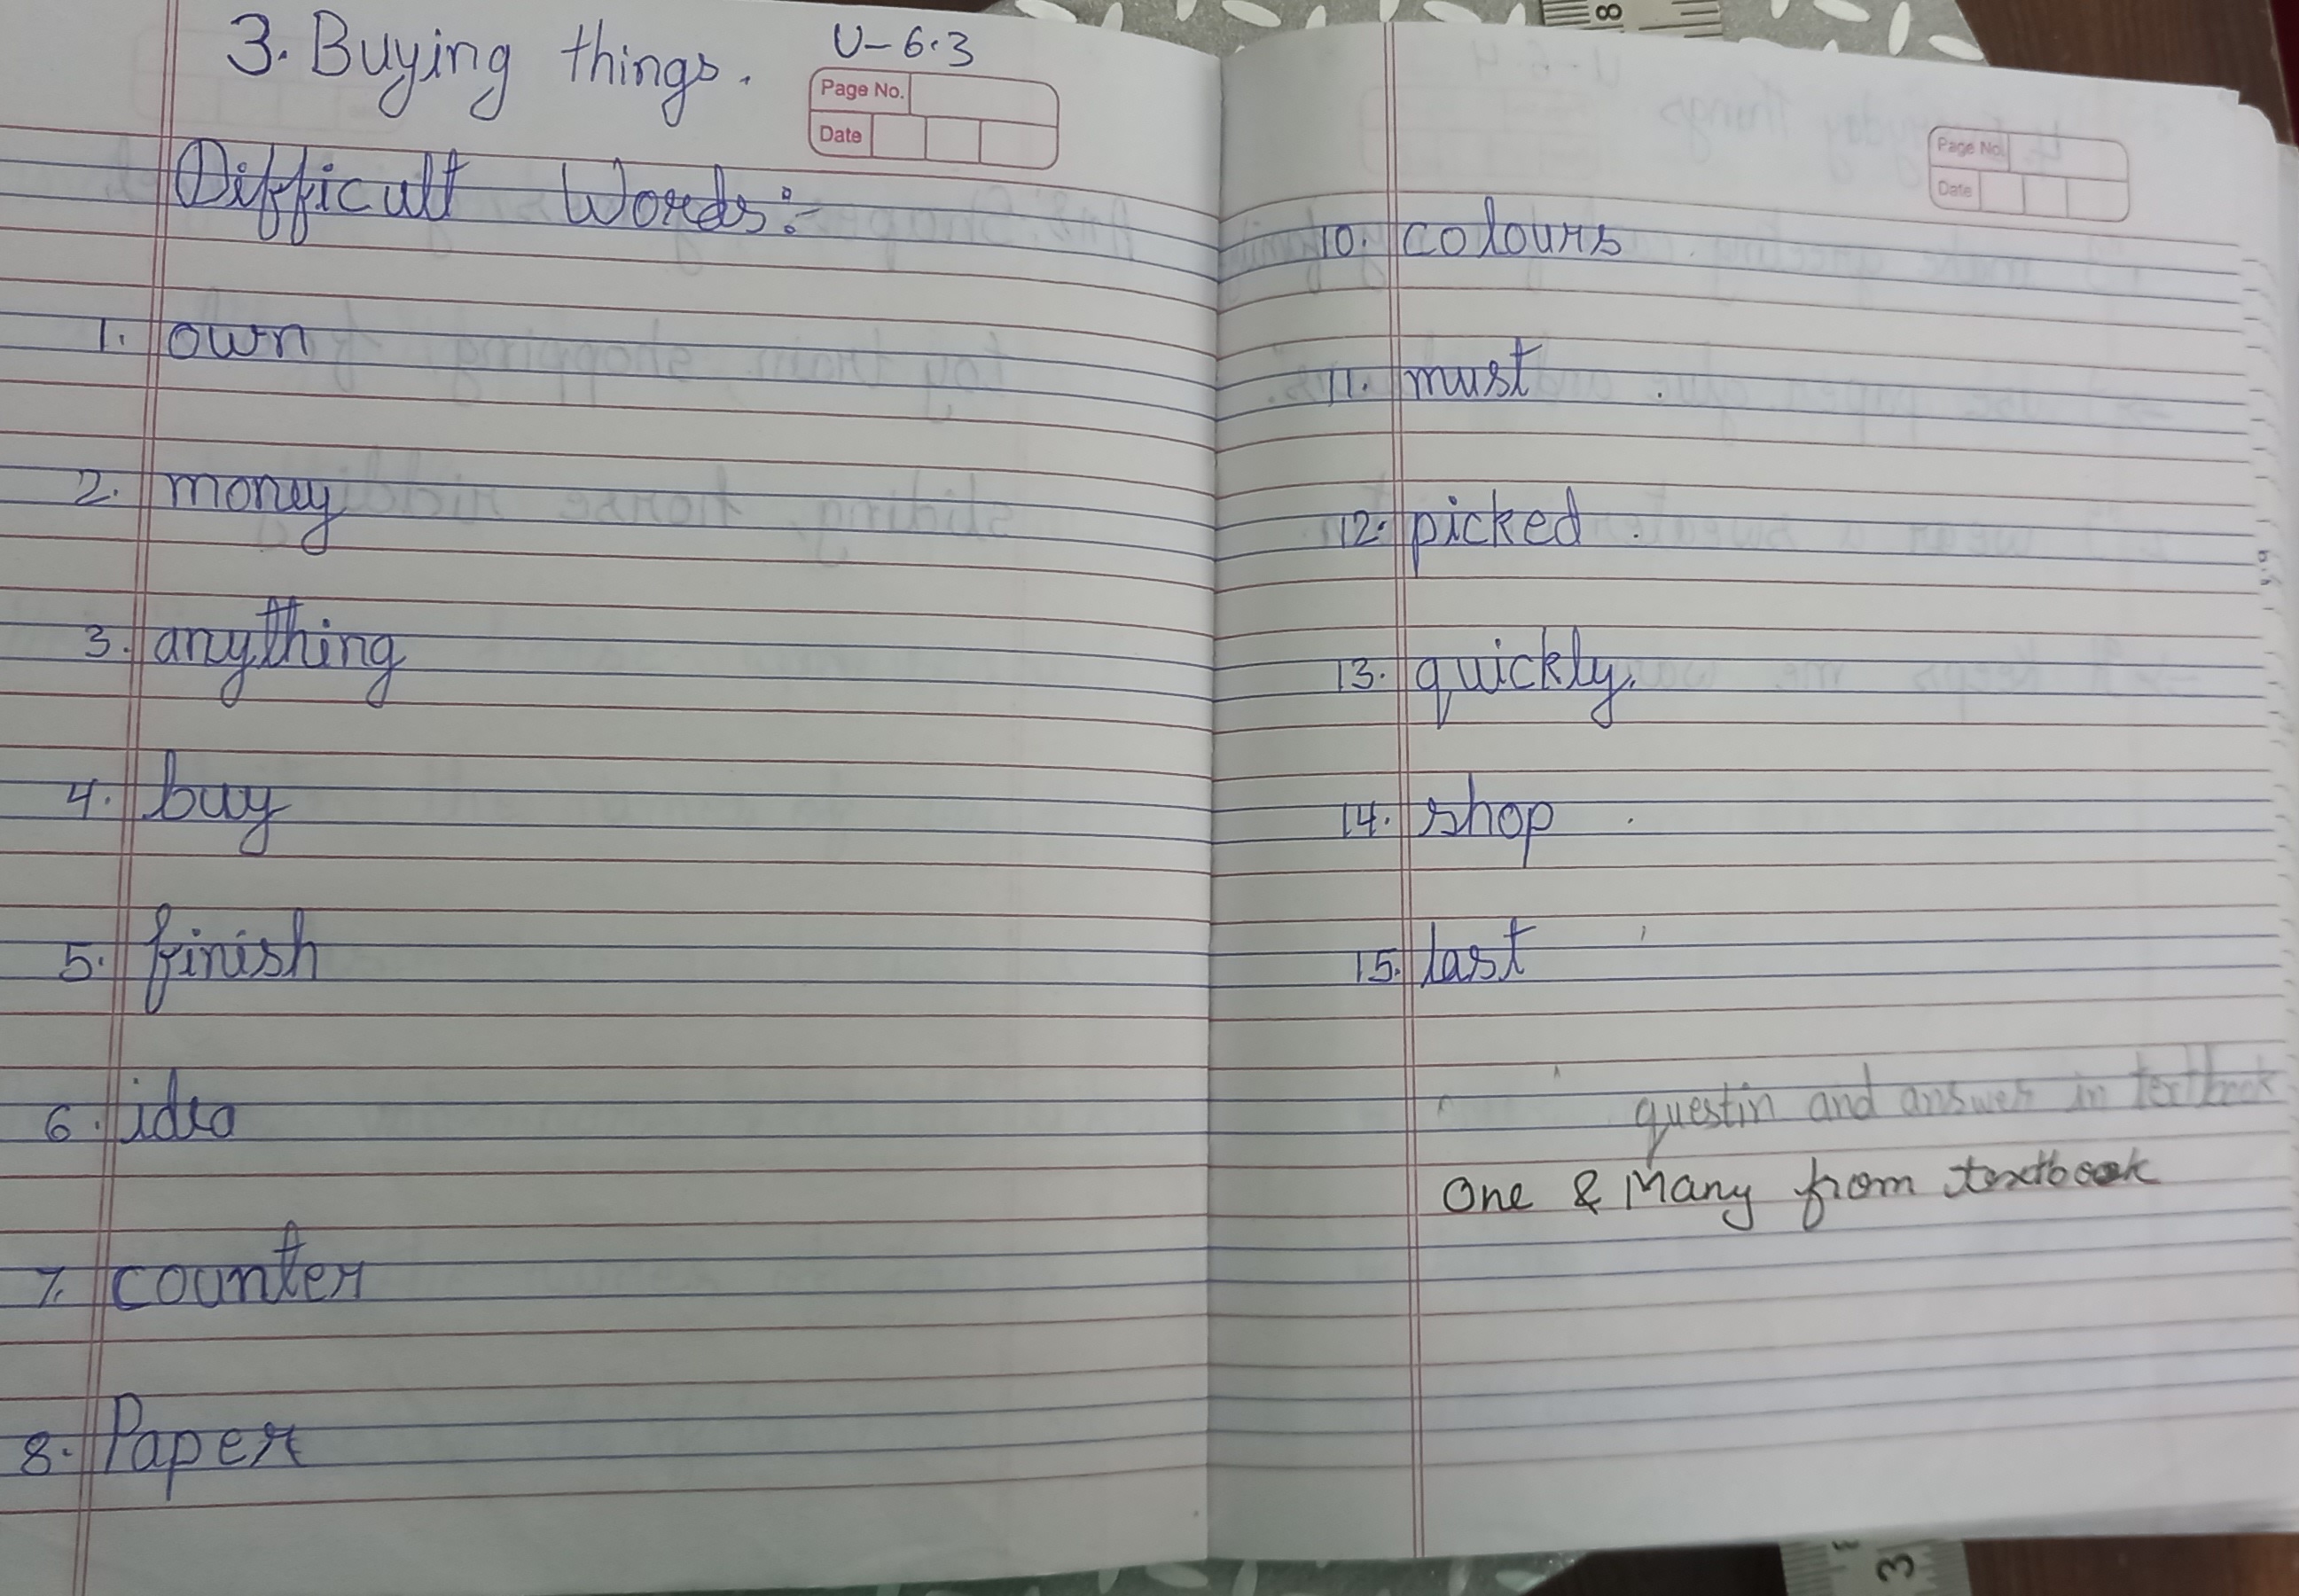 3. Buying things.
U-6.3
Page No.
Date
Difficult Words:-
1. own
2. money
3. anything
4. buy
5. finish
6. idea
7. counter
8. Paper
Page No.
Date
10. colours
11. must
12. picked
13. quickly.
14. shop
15. last
questin and answer in textbook
One & Many from textbook
8
3